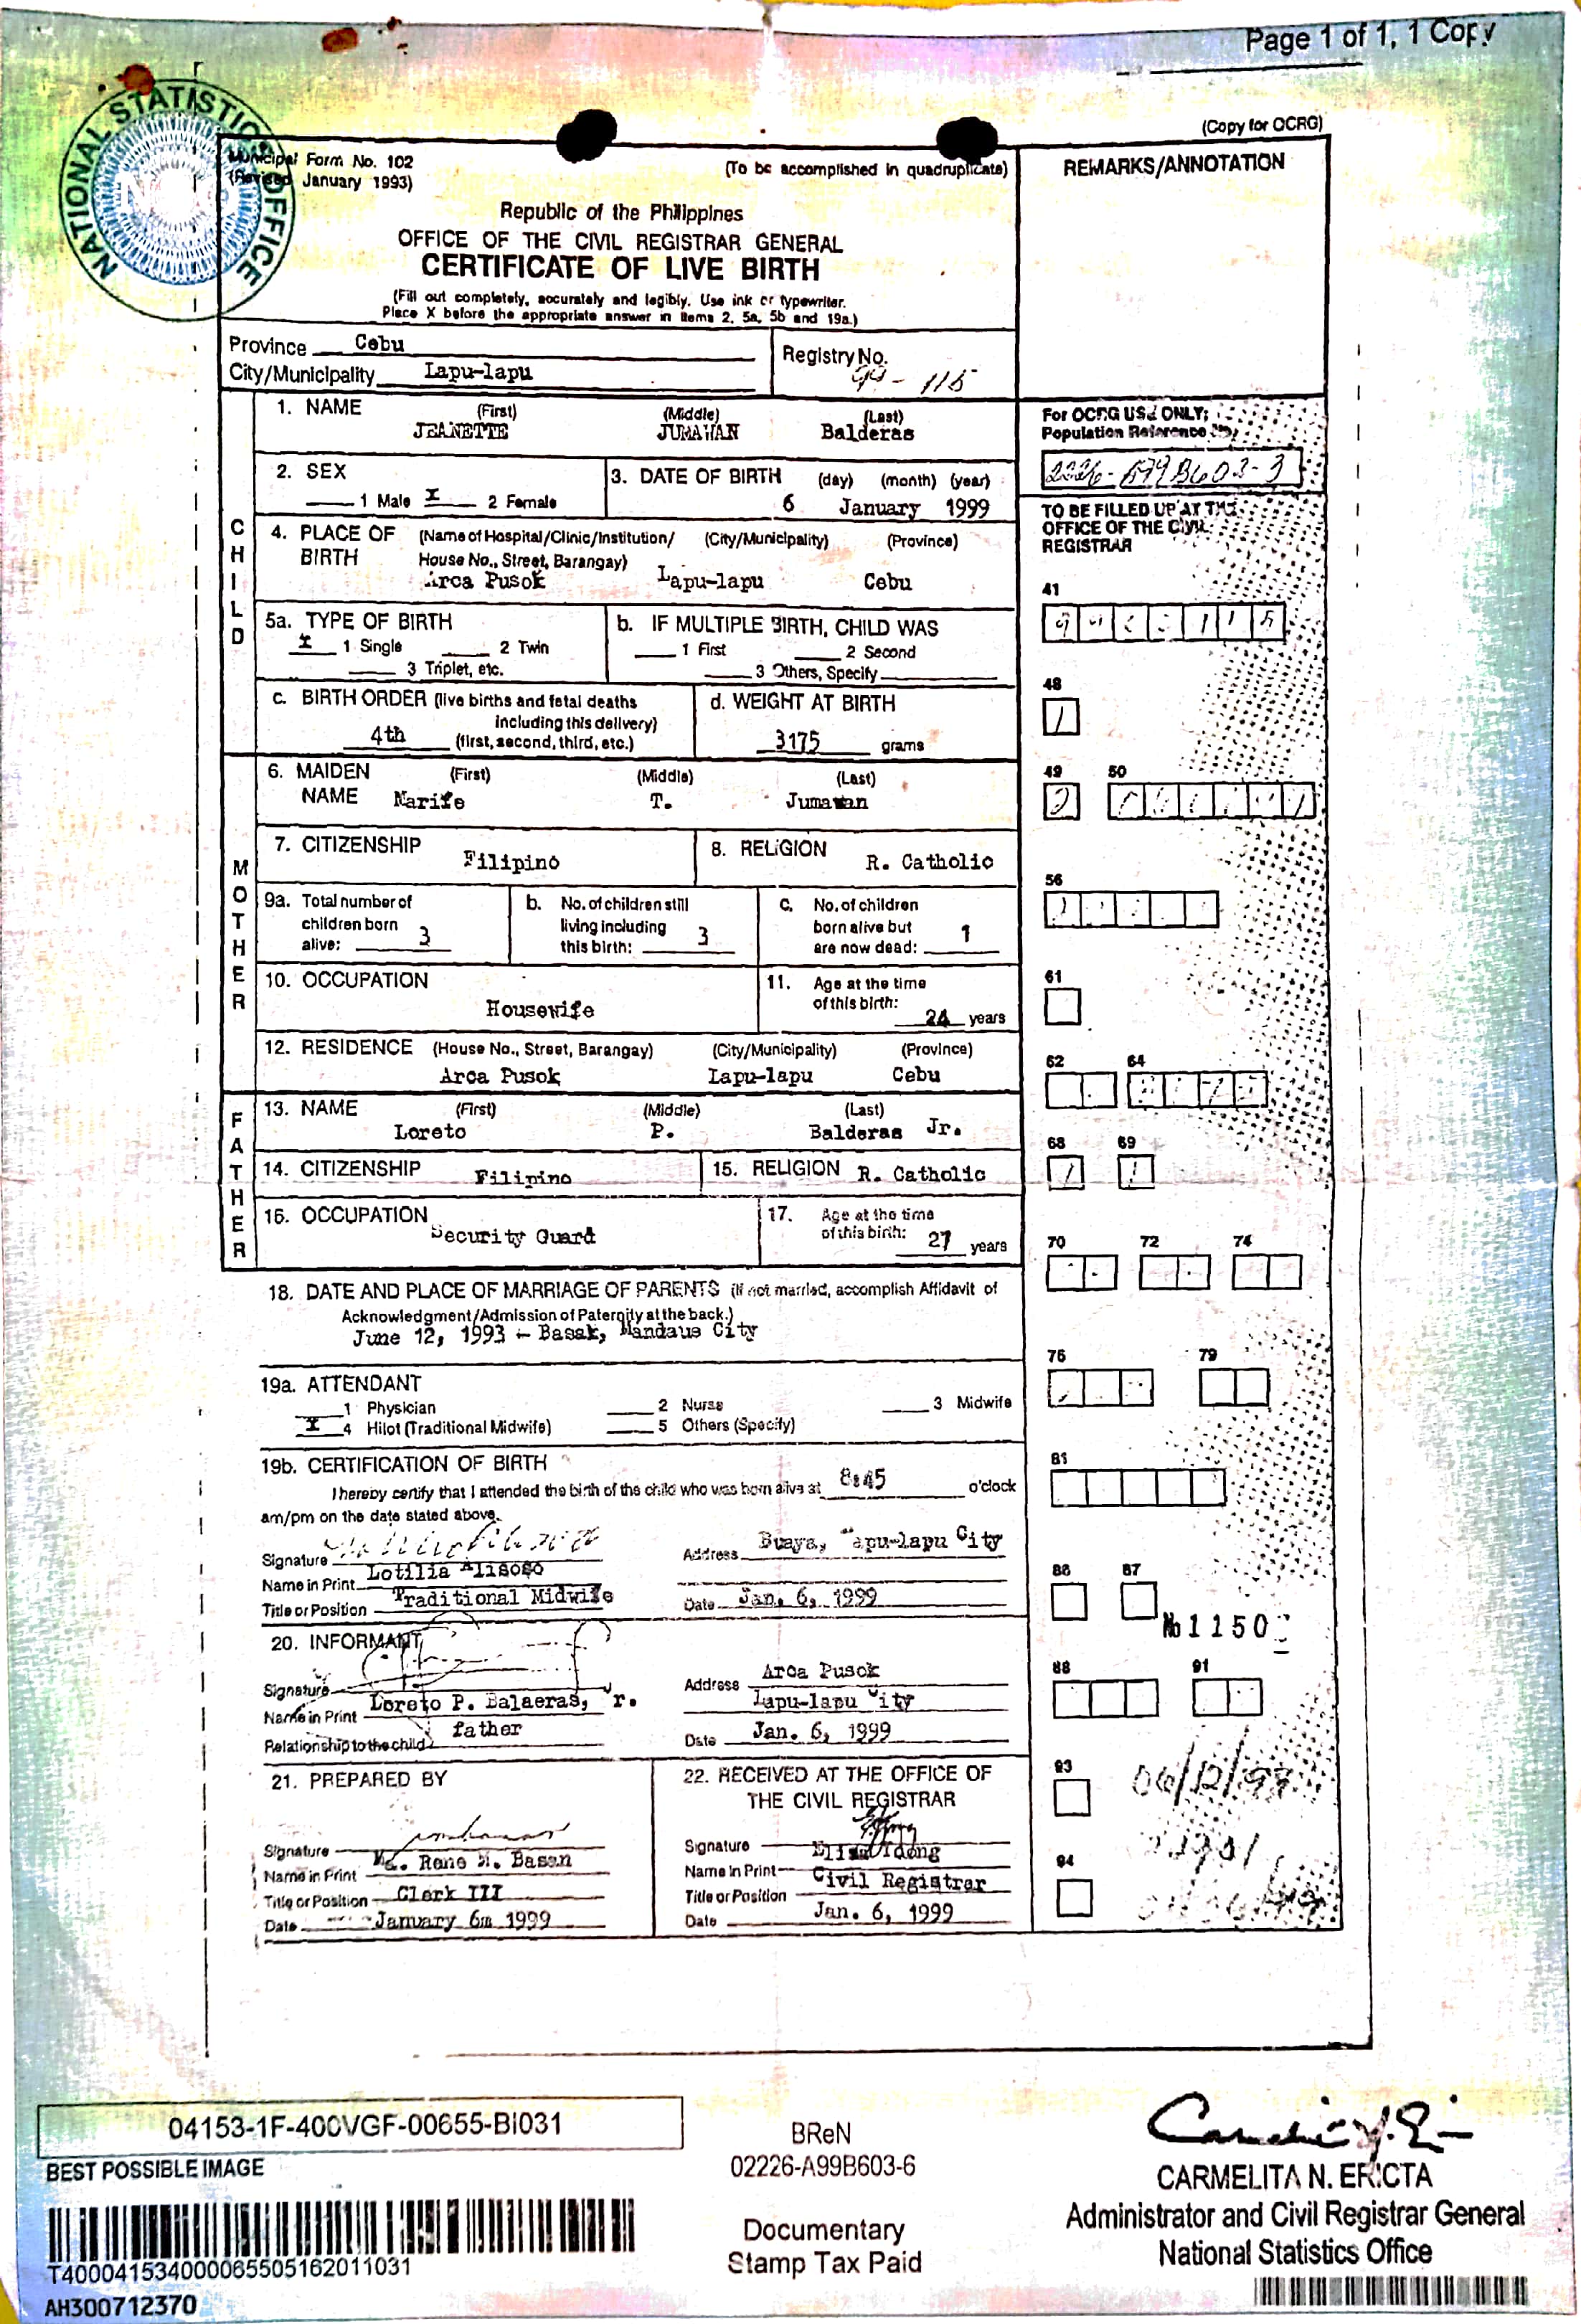 Page 1 of 1, 1 Copy
(Copy for OCRG)
NATIONAL STATISTICS OFFICE
Municipal Form No. 102
(Revised January 1993)
(To be accomplished in quadruplicate)
REMARKS/ANNOTATION
Republic of the Philippines
OFFICE OF THE CIVIL REGISTRAR GENERAL
CERTIFICATE OF LIVE BIRTH
(Fill out completely, accurately and legibly. Use ink or typewriter.
Place X before the appropriate answer in items 2, 5a, 5b and 19a.)
Province Cebu
City/Municipality Lapu-lapu
Registry No.
99 - 115
CHILD
1. NAME (First) (Middle) (Last)
JEANETTE JUMAWAN Balderas
For OCRG USE ONLY:
Population Reference No.
2. SEX
1 Male X 2 Female
3. DATE OF BIRTH (day) (month) (year)
6 January 1999
TO BE FILLED UP AT THE
OFFICE OF THE CIVIL
REGISTRAR
4. PLACE OF BIRTH (Name of Hospital/Clinic/Institution/ (City/Municipality) (Province)
House No., Street, Barangay)
Arca Pusok Lapu-lapu Cebu
41
5a. TYPE OF BIRTH
X 1 Single 2 Twin
3 Triplet, etc.
b. IF MULTIPLE BIRTH, CHILD WAS
1 First 2 Second
3 Others, Specify
48
1
c. BIRTH ORDER (live births and fetal deaths
including this delivery)
4th (first, second, third, etc.)
d. WEIGHT AT BIRTH
3175 grams
MOTHER
6. MAIDEN NAME (First) (Middle) (Last)
Marife T. Jumawan
49 50
2
7. CITIZENSHIP Filipino
8. RELIGION R. Catholic
9a. Total number of
children born
alive: 3
b. No. of children still
living including
this birth: 3
c. No. of children
born alive but
are now dead: 1
56
10. OCCUPATION
Housewife
11. Age at the time
of this birth:
24 years
61
12. RESIDENCE (House No., Street, Barangay) (City/Municipality) (Province)
Arca Pusok Lapu-lapu Cebu
62 64
FATHER
13. NAME (First) (Middle) (Last)
Loreto P. Balderas Jr.
68 69
1 1
14. CITIZENSHIP Filipino
15. RELIGION R. Catholic
16. OCCUPATION
Security Guard
17. Age at the time
of this birth: 27 years
70 72 74
18. DATE AND PLACE OF MARRIAGE OF PARENTS (If not married, accomplish Affidavit of
Acknowledgment/Admission of Paternity at the back.)
June 12, 1993 - Basak, Mandaue City
75 79
19a. ATTENDANT
1 Physician 2 Nurse 3 Midwife
X 4 Hilot (Traditional Midwife) 5 Others (Specify)
19b. CERTIFICATION OF BIRTH
I hereby certify that I attended the birth of the child who was born alive at 8:45 o'clock
am/pm on the date stated above.
81
Signature
Name in Print Lotilia
Title or Position Traditional Midwife
Address Buaya, Lapu-lapu City
Date Jan. 6, 1999
86 87
No 1150
20. INFORMANT
Signature
Name in Print Loreto P. Balaeras, Jr.
Relationship to the child father
Address Arca Pusok
Lapu-lapu City
Date Jan. 6, 1999
88 91
21. PREPARED BY
Signature
Name in Print Ma. Rene M. Basan
Title or Position Clerk III
Date January 6m 1999
22. RECEIVED AT THE OFFICE OF
THE CIVIL REGISTRAR
Signature
Name in Print
Title or Position Civil Registrar
Date Jan. 6, 1999
93
94
04153-1F-400VGF-00655-BI031
BEST POSSIBLE IMAGE
T400041534000065505162011031
AH300712370
BReN
02226-A99B603-6
Documentary
Stamp Tax Paid
CARMELITA N. ERICTA
Administrator and Civil Registrar General
National Statistics Office